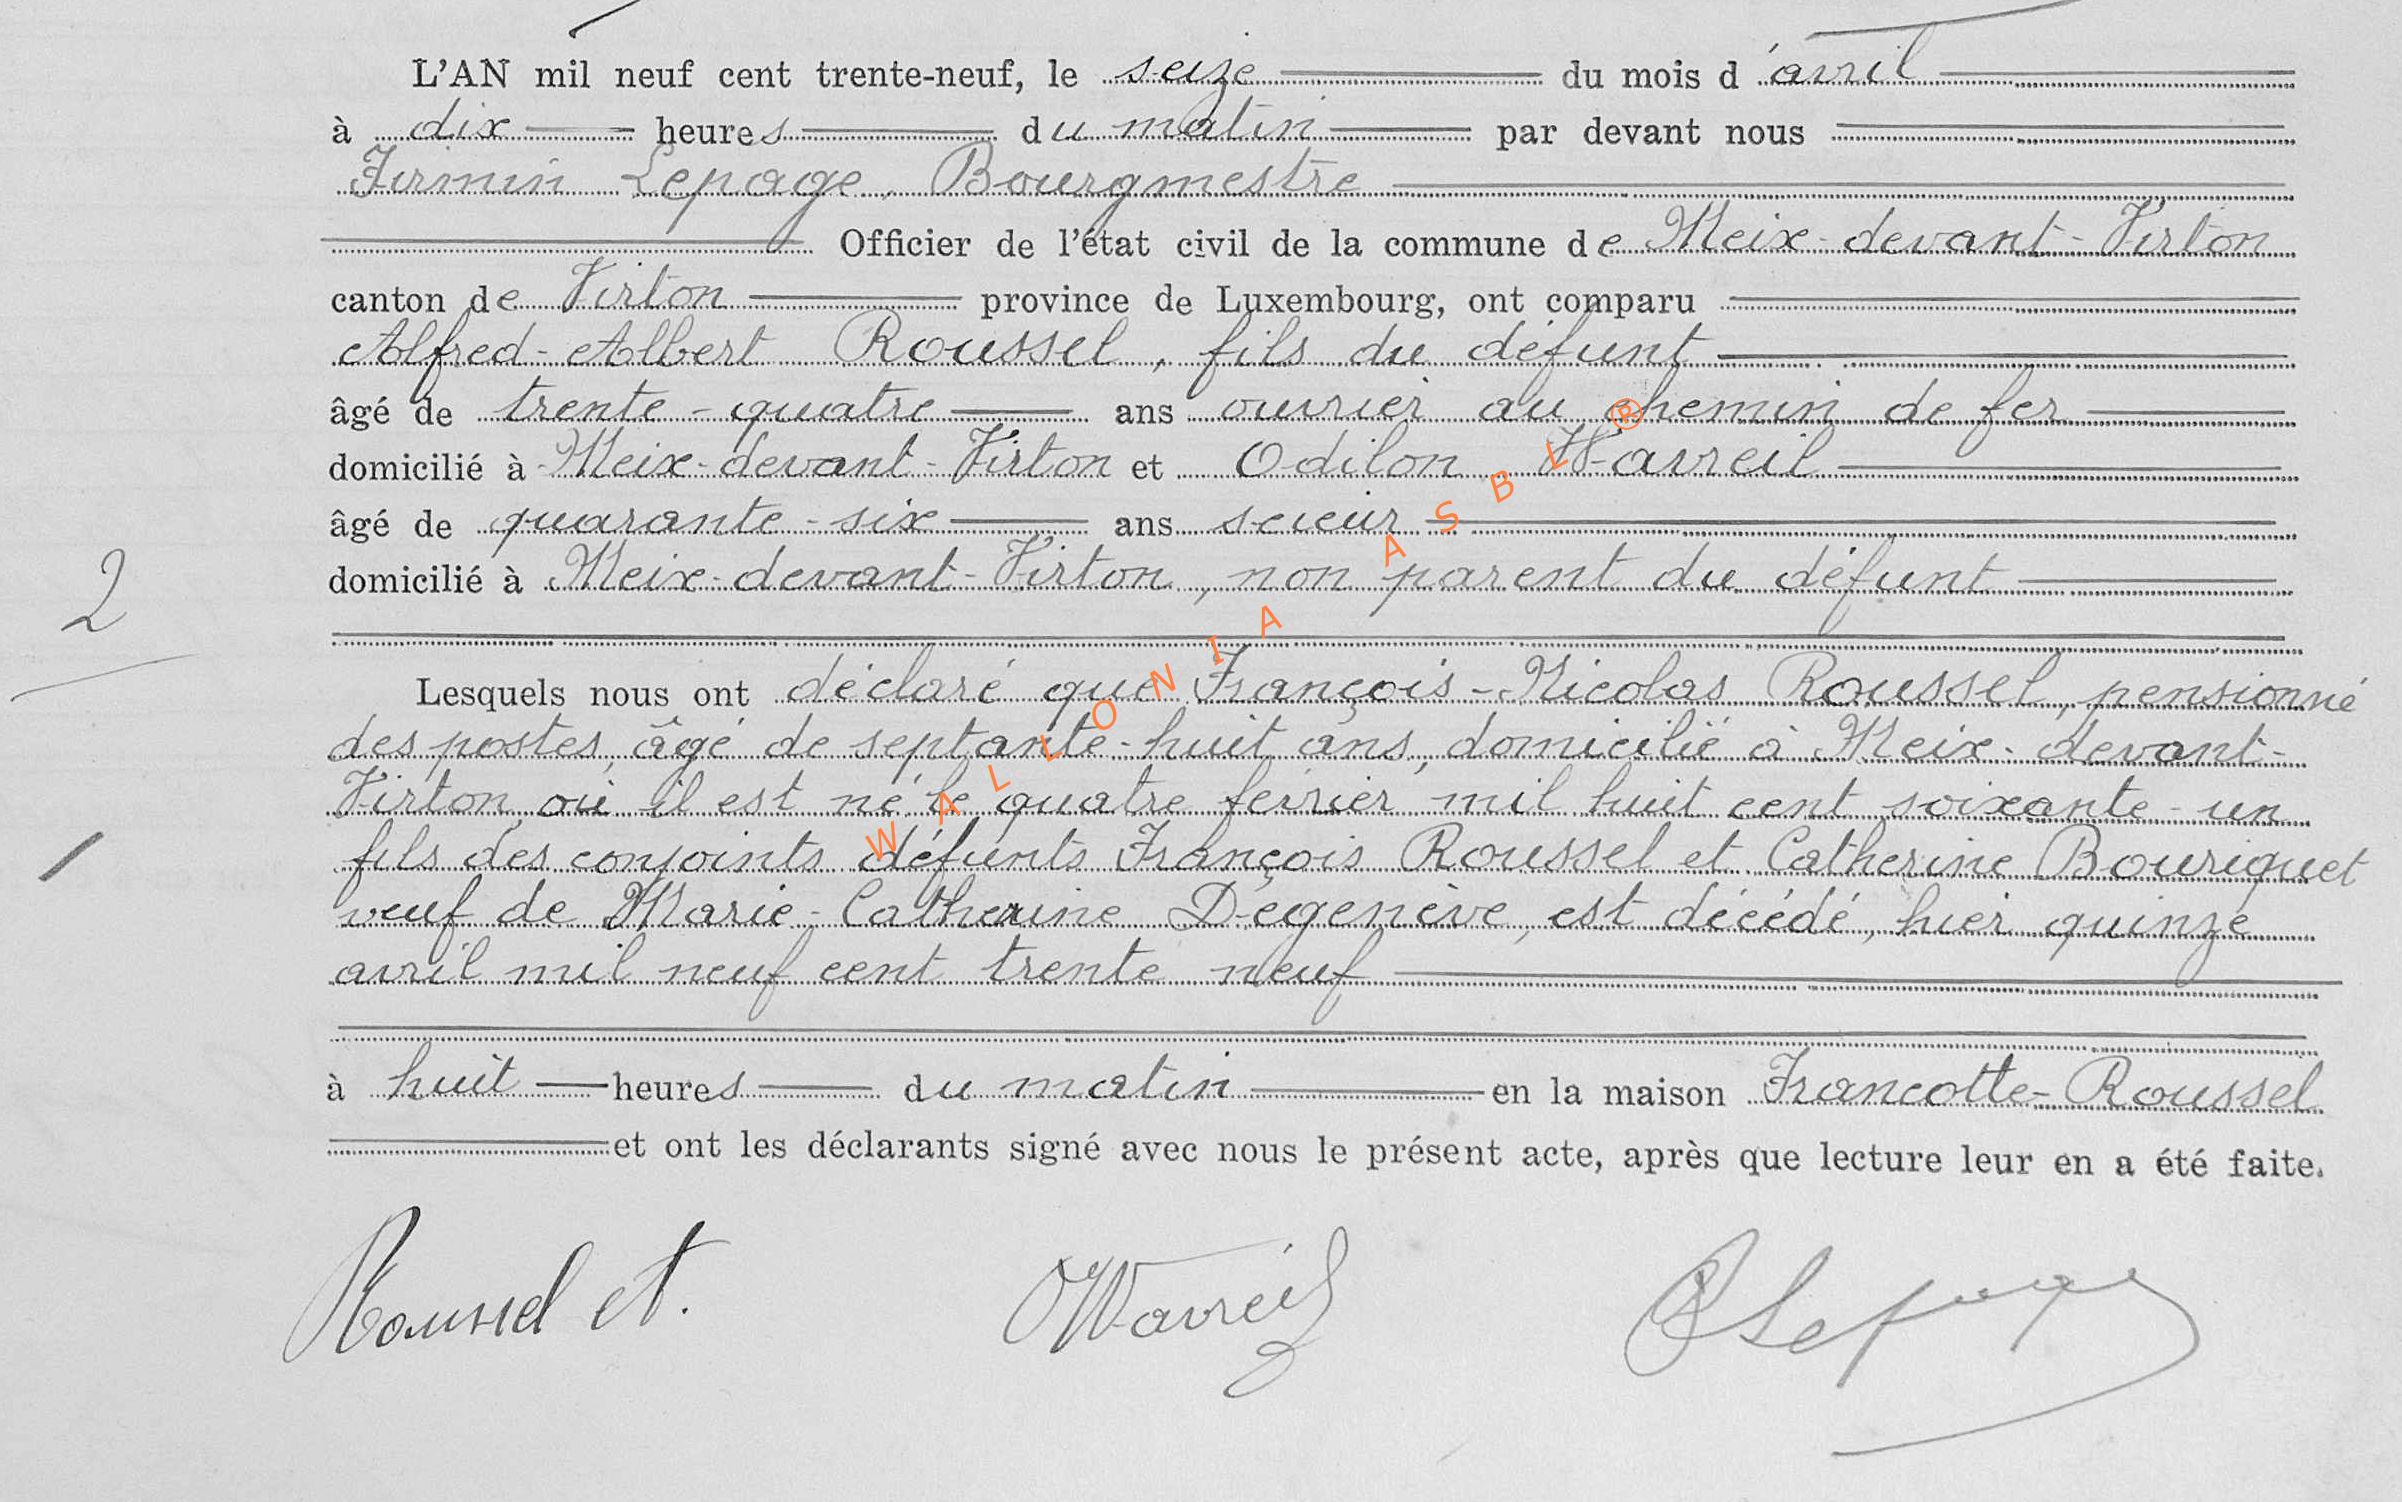 L'AN mil neuf cent trente-neuf, le seize du mois d'avril
à dix heures du matin par devant nous
Firmin Lepage, Bourgmestre
Officier de l'état civil de la commune de Meix-devant-Virton
canton de Virton province de Luxembourg, ont comparu
Alfred-Albert Roussel, fils du défunt
âgé de trente-quatre ans ouvrier au chemin de fer
domicilié à Meix-devant-Virton et Odilon Wavreil
âgé de quarante-six ans scieur
domicilié à Meix-devant-Virton, non parent du défunt
2
Lesquels nous ont déclaré que François-Nicolas Roussel, pensionné
des postes, âgé de septante-huit ans, domicilié à Meix-devant-
Virton où il est né le quatre février mil huit cent soixante-un
fils des conjoints défunts François Roussel et Catherine Bouriquet
veuf de Marie-Catherine Dégenève, est décédé, hier quinze
avril mil neuf cent trente neuf
à huit heures du matin en la maison Francotte-Roussel
et ont les déclarants signé avec nous le présent acte, après que lecture leur en a été faite.
Roussel A. OWavreil Lepage
WALLONIA ASBL ®